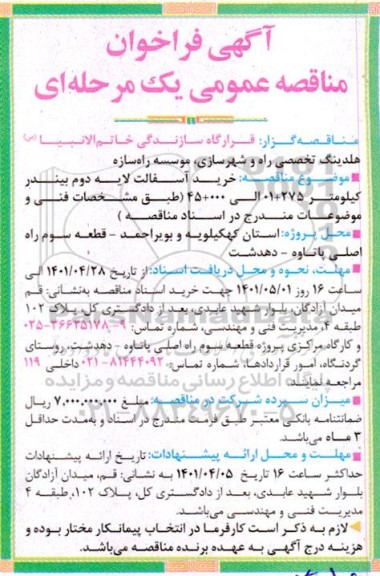 آگهی فراخوان
مناقصه عمومی یک مرحله‌ای
مناقصه‌گزار: قرارگاه سازندگی خاتم‌الانبیا (ص)
هلدینگ تخصصی راه و شهرسازی، موسسه راه‌سازه
موضوع مناقصه: خرید آسفالت لایه دوم بیندر
کیلومتر ۲۷۵+۰۱ الی ۰۰۰+۴۵ (طبق مشخصات فنی و
موضوعات مندرج در اسناد مناقصه)
محل پروژه: استان کهکیلویه و بویراحمد - قطعه سوم راه
اصلی پاتاوه - دهدشت
مهلت، نحوه و محل دریافت اسناد: از تاریخ ۱۴۰۱/۰۴/۲۸ الی
ساعت ۱۶ روز ۱۴۰۱/۰۵/۰۱ جهت خرید اسناد مناقصه به‌نشانی: قم
میدان آزادگان، بلوار شهید عابدی، بعد از دادگستری کل، پلاک ۱۰۲
طبقه ۴، مدیریت فنی و مهندسی، شماره تماس: ۹-۳۶۶۳۵۱۷۸-۰۲۵
و کارگاه مرکزی پروژه قطعه سوم راه اصلی پاتاوه - دهدشت، روستای
گردنگاه، امور قراردادها، شماره تماس: ۸۱۴۴۴۰۹۲-۰۲۱ داخلی ۱۱۹
مراجعه نمایند.
میزان سپرده شرکت در مناقصه: مبلغ ۷,۰۰۰,۰۰۰,۰۰۰ ریال
ضمانتنامه بانکی معتبر طبق فرمت مندرج در اسناد و به‌مدت حداقل
۳ ماه می‌باشد.
مهلت و محل ارائه پیشنهادات: تاریخ ارائه پیشنهادات
حداکثر ساعت ۱۶ تاریخ ۱۴۰۱/۰۴/۰۵ به نشانی: قم، میدان آزادگان
بلوار شهید عابدی، بعد از دادگستری کل، پلاک ۱۰۲، طبقه ۴
مدیریت فنی و مهندسی می‌باشد.
لازم به ذکر است کارفرما در انتخاب پیمانکار مختار بوده و
هزینه درج آگهی به عهده برنده مناقصه می‌باشد.
پایگاه اطلاع رسانی مناقصه و مزایده
۰۲۱-۸۸۳۴۹۶۷۰-۵